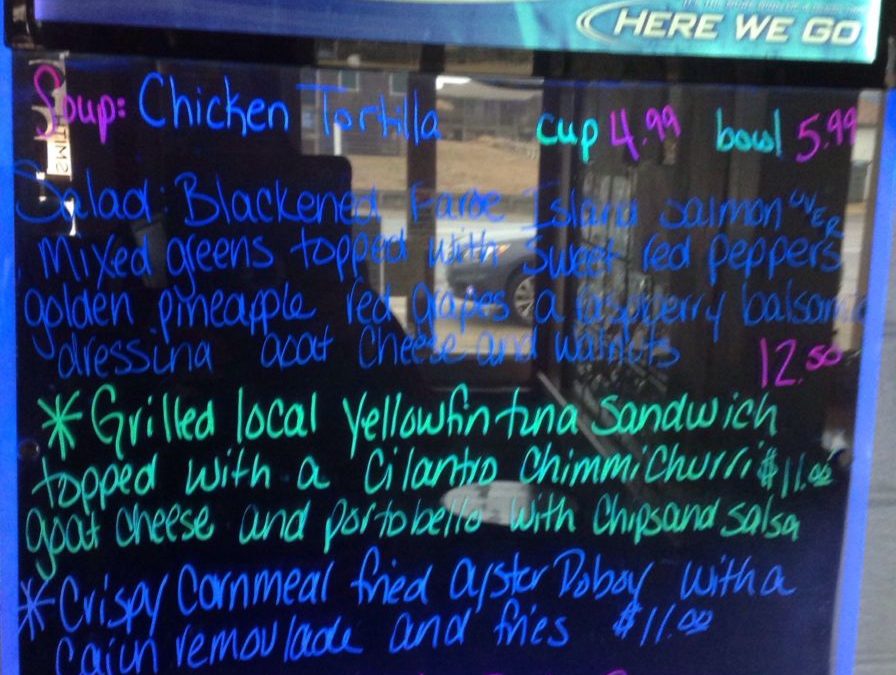 HERE WE GO
Soup: Chicken Tortilla cup 4.99 bowl 5.99
Salad: Blackened Faroe Island salmon OVER
Mixed greens topped with sweet red peppers
golden pineapple red grapes a raspberry balsamic
dressing goat cheese and walnuts 12.50
*Grilled local yellowfin tuna sandwich
topped with a cilantro chimmichurri $11.00
goat cheese and portobello with chips and salsa
*Crispy cornmeal fried oyster Poboy with a
cajun remoulade and fries $11.00